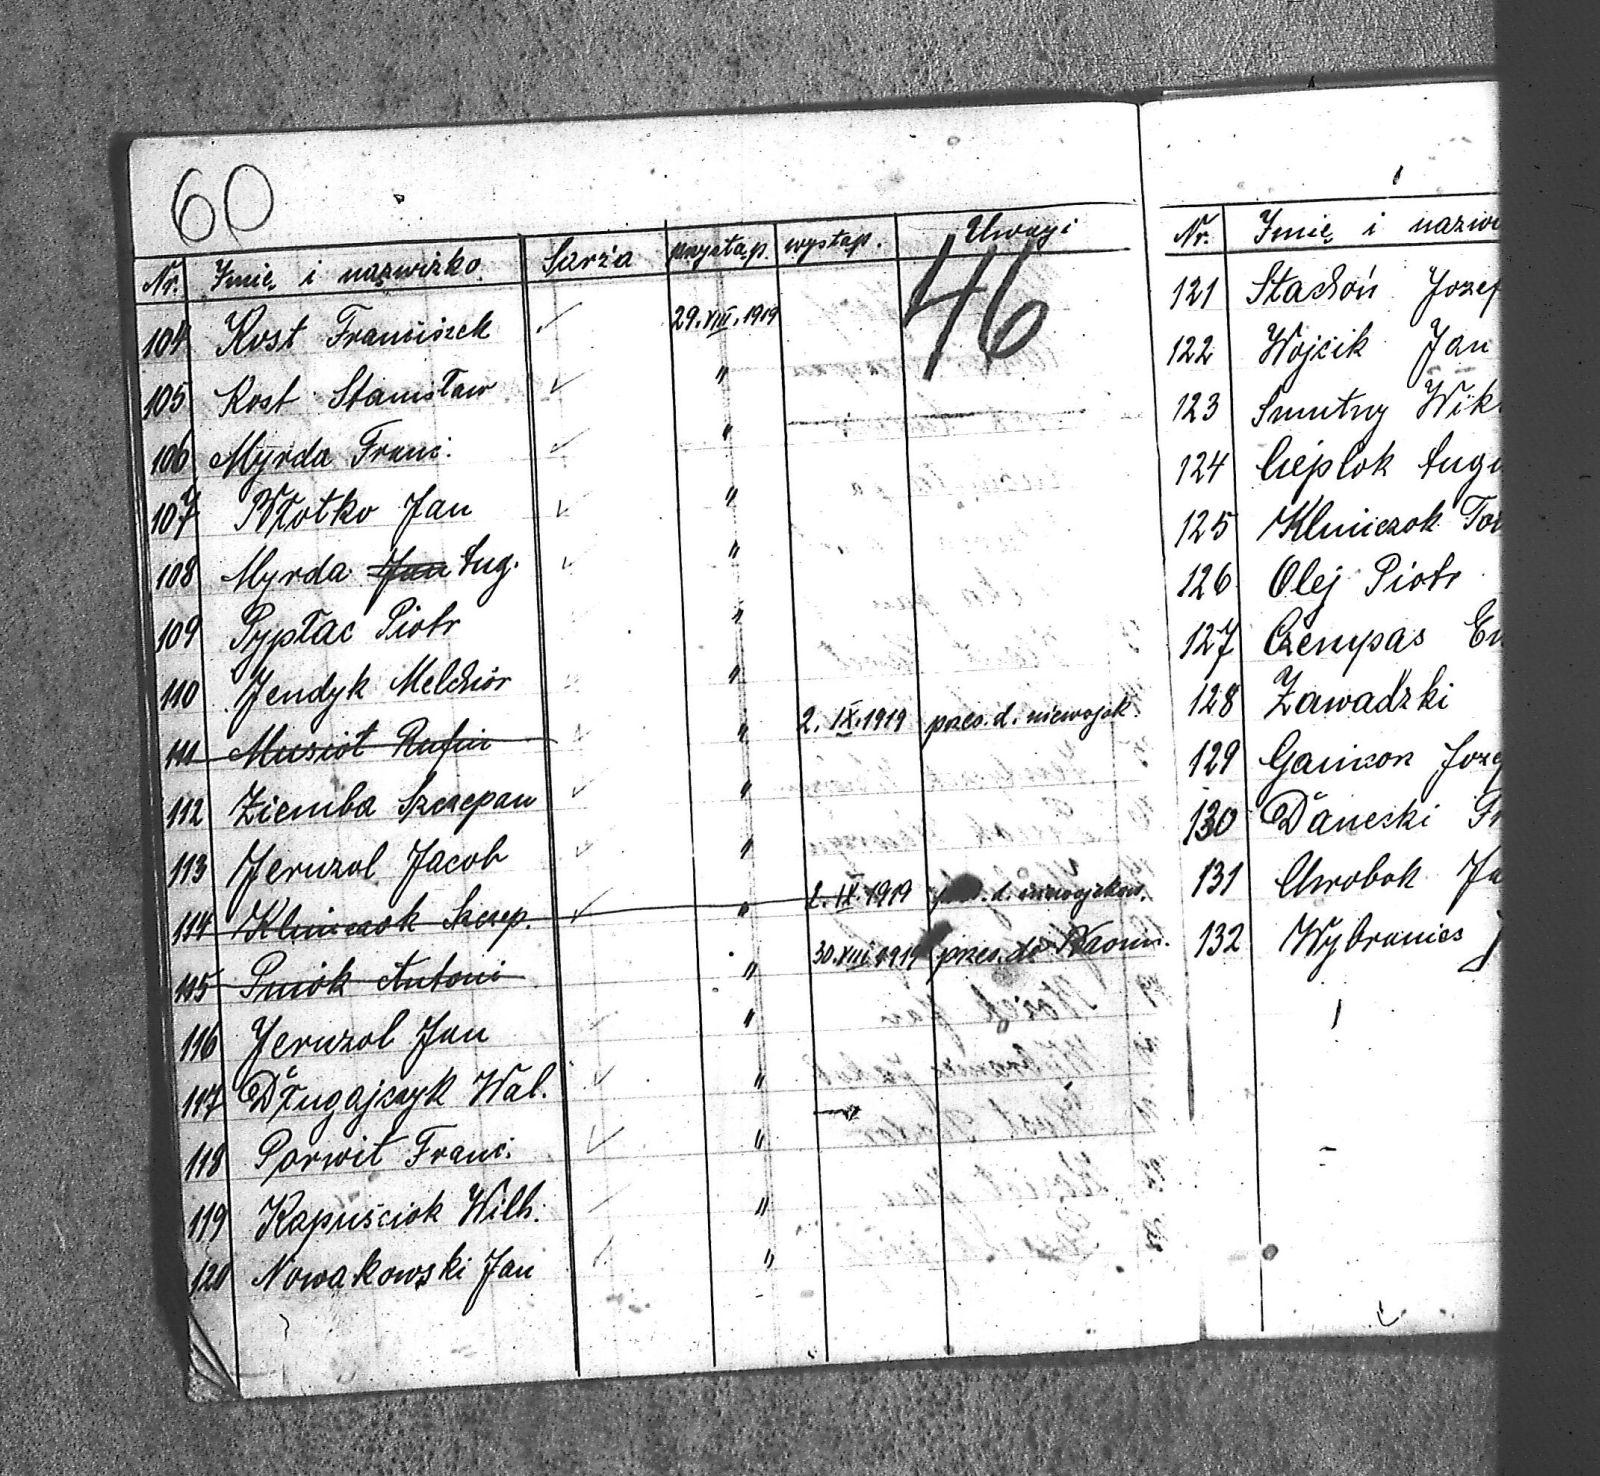 60
Nr. Imię i nazwisko. Sarża przystąp. wystąp. Uwagi
46
104 Kost Franciszek 29.VIII.1919
105 Kost Stanisław "
106 Myrda Franc. "
107 Wżotko Jan "
108 Myrda Jan Aug. "
109 Pypłac Piotr "
110 Jendyk Melchior "
111 Musioł Rufin " 2.IX.1919 przes. d. niewojsk.
112 Ziemba Szczepan "
113 Jeruzol Jacob "
114 Klimczok Szczep. " 2.IX.1919 d. niewojskow.
115 Pniok Antoni " 30.VIII.1919 przes. do
116 Jeruzol Jan "
117 Długajczyk Wal. "
118 Porwit Franc. "
119 Kapuściok Wilh. "
120 Nowakowski Jan "
Nr. Imię i nazwi
121 Stachoń Jozef
122 Wojcik Jan
123 Smutny Wik
124 Cieplok Augu
125 Klimczok
126 Olej Piotr
127 Czempas
128 Zawadzki
129 Joze
130 Dánecki
131 Chrobok Ja
132 Wybranies J